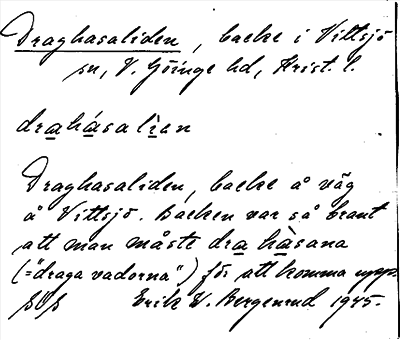 Draghasaliden, backe i Vittsjö
sn, V. Göinge hd, Krist. l.
drahásalìen
Draghasaliden, backe å väg
å Vittsjö. Backen var så brant
att man måste dra hàsana
(="draga vadorna") för att komma upp.
Erik V. Bergenrud 1945.